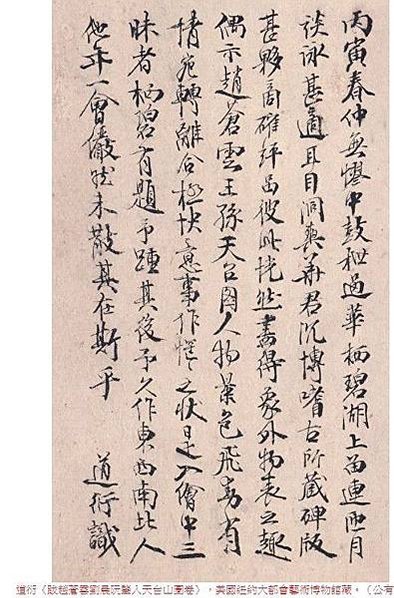 丙寅春仲無憀中鼓枻過華栖碧湖上留連兩月
談詠甚適且目洞奧華君沉博嗜古所藏碑版
甚夥商確評品彼此恍然盡得象外物表之趣
偶示趙蒼雲王孫天台圖人物葉色飛動有
情宛轉離合極快意事作之狀是入繪中三
昧者栖碧有題予踵其後予久作東西南北人
他年一會儼然未散其在斯乎
道衍識
道衍《跋趙蒼雲劉晨阮肇入天台山圖卷》，美國紐約大都會藝術博物館藏。（公有